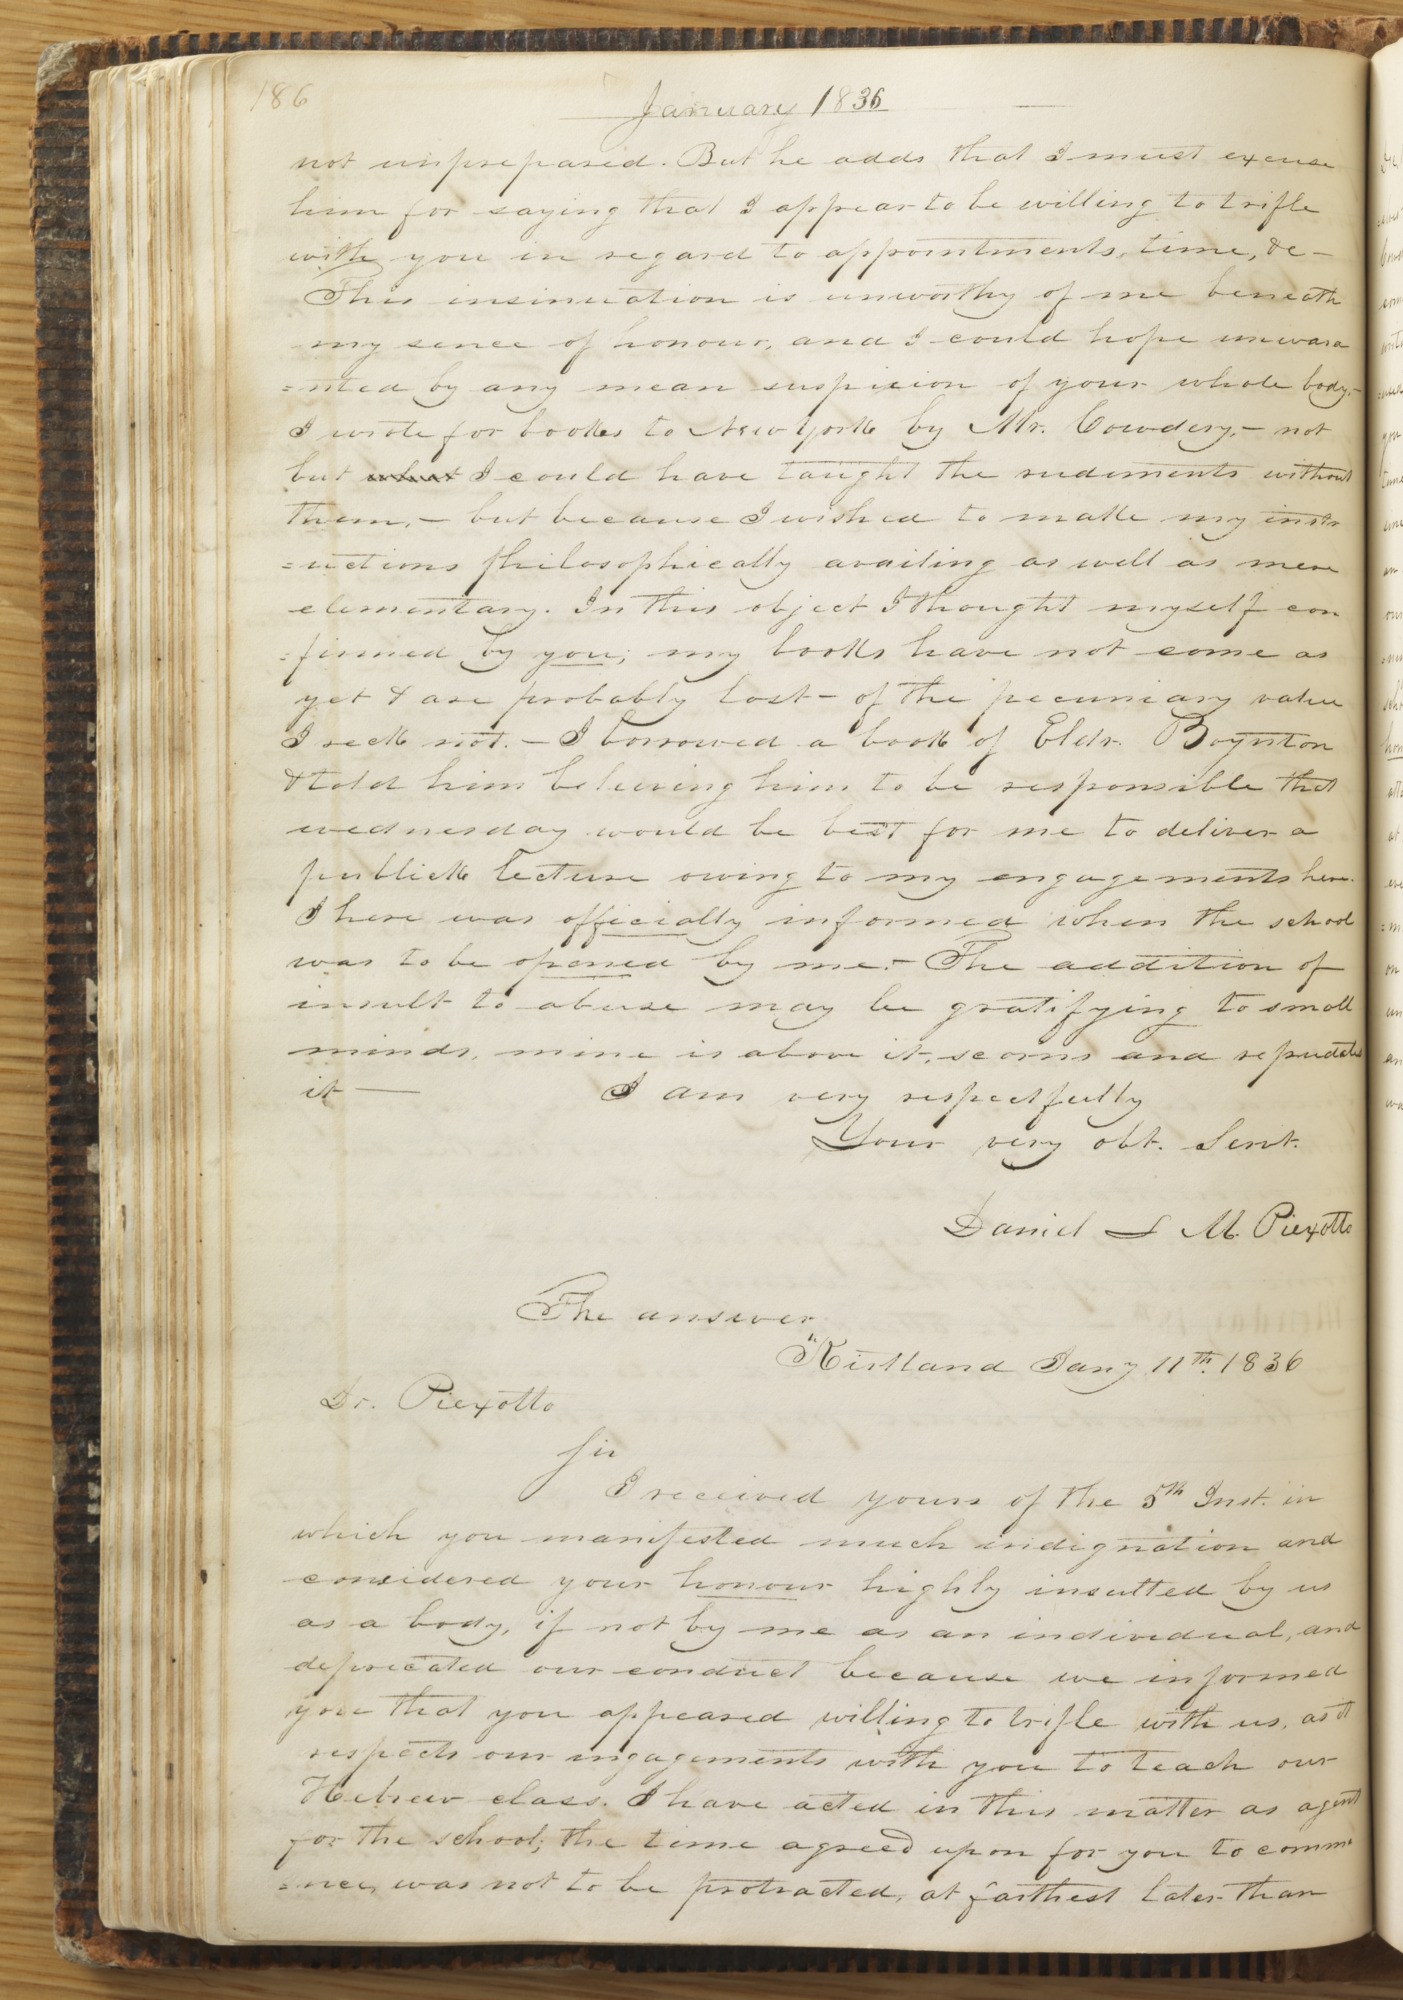 186
January 1836
not unprepared. But he adds that I must excuse
him for saying that I appear to be willing to trifle
with you in regard to appointments, time, &c –
This insinuation is unworthy of me beneath
my sence of honour, and I could hope unwara
=nted by any mean suspicion of your whole body.–
I wrote for books to New York by Mr. Cowdery,– not
but what I could have taught the rudiments without
them,– but because I wished to make my instr
=uctions philosophically availing as well as mere
elementary. In this object I thought myself con
=firmed by you; my books have not come as
yet & are probably lost– of the pecuniary value
I reck not.– I borrowed a book of Eldr. Boynton
& told him beleiving him to be responsible that
wednesday would be best for me to deliver a
publick lecture owing to my engagements here.
I here was officially informed when the school
was to be opened by me.– The addition of
insult to abuse may be gratifying to small
minds, mine is above it, scorns and repudiates
it — I am very respectfully
Your very obt. Servt.
Daniel L M. Piexotto
The answer
"Kirtland Jany 11th. 1836
Dr. Piexotto
Sir
I received yours of the 5th Inst. in
which you manifested much indignation and
considered your honour highly insulted by us
as a body, if not by me as an individual, and
deprecated our conduct because we informed
you that you appeared willing to trifle with us, as it
respects our ingagements with you to teach our
Hebrew class. I have acted in this matter as agent
for the school; the time agreed upon for you to comme
=nce, was not to be protracted, at farthest later than